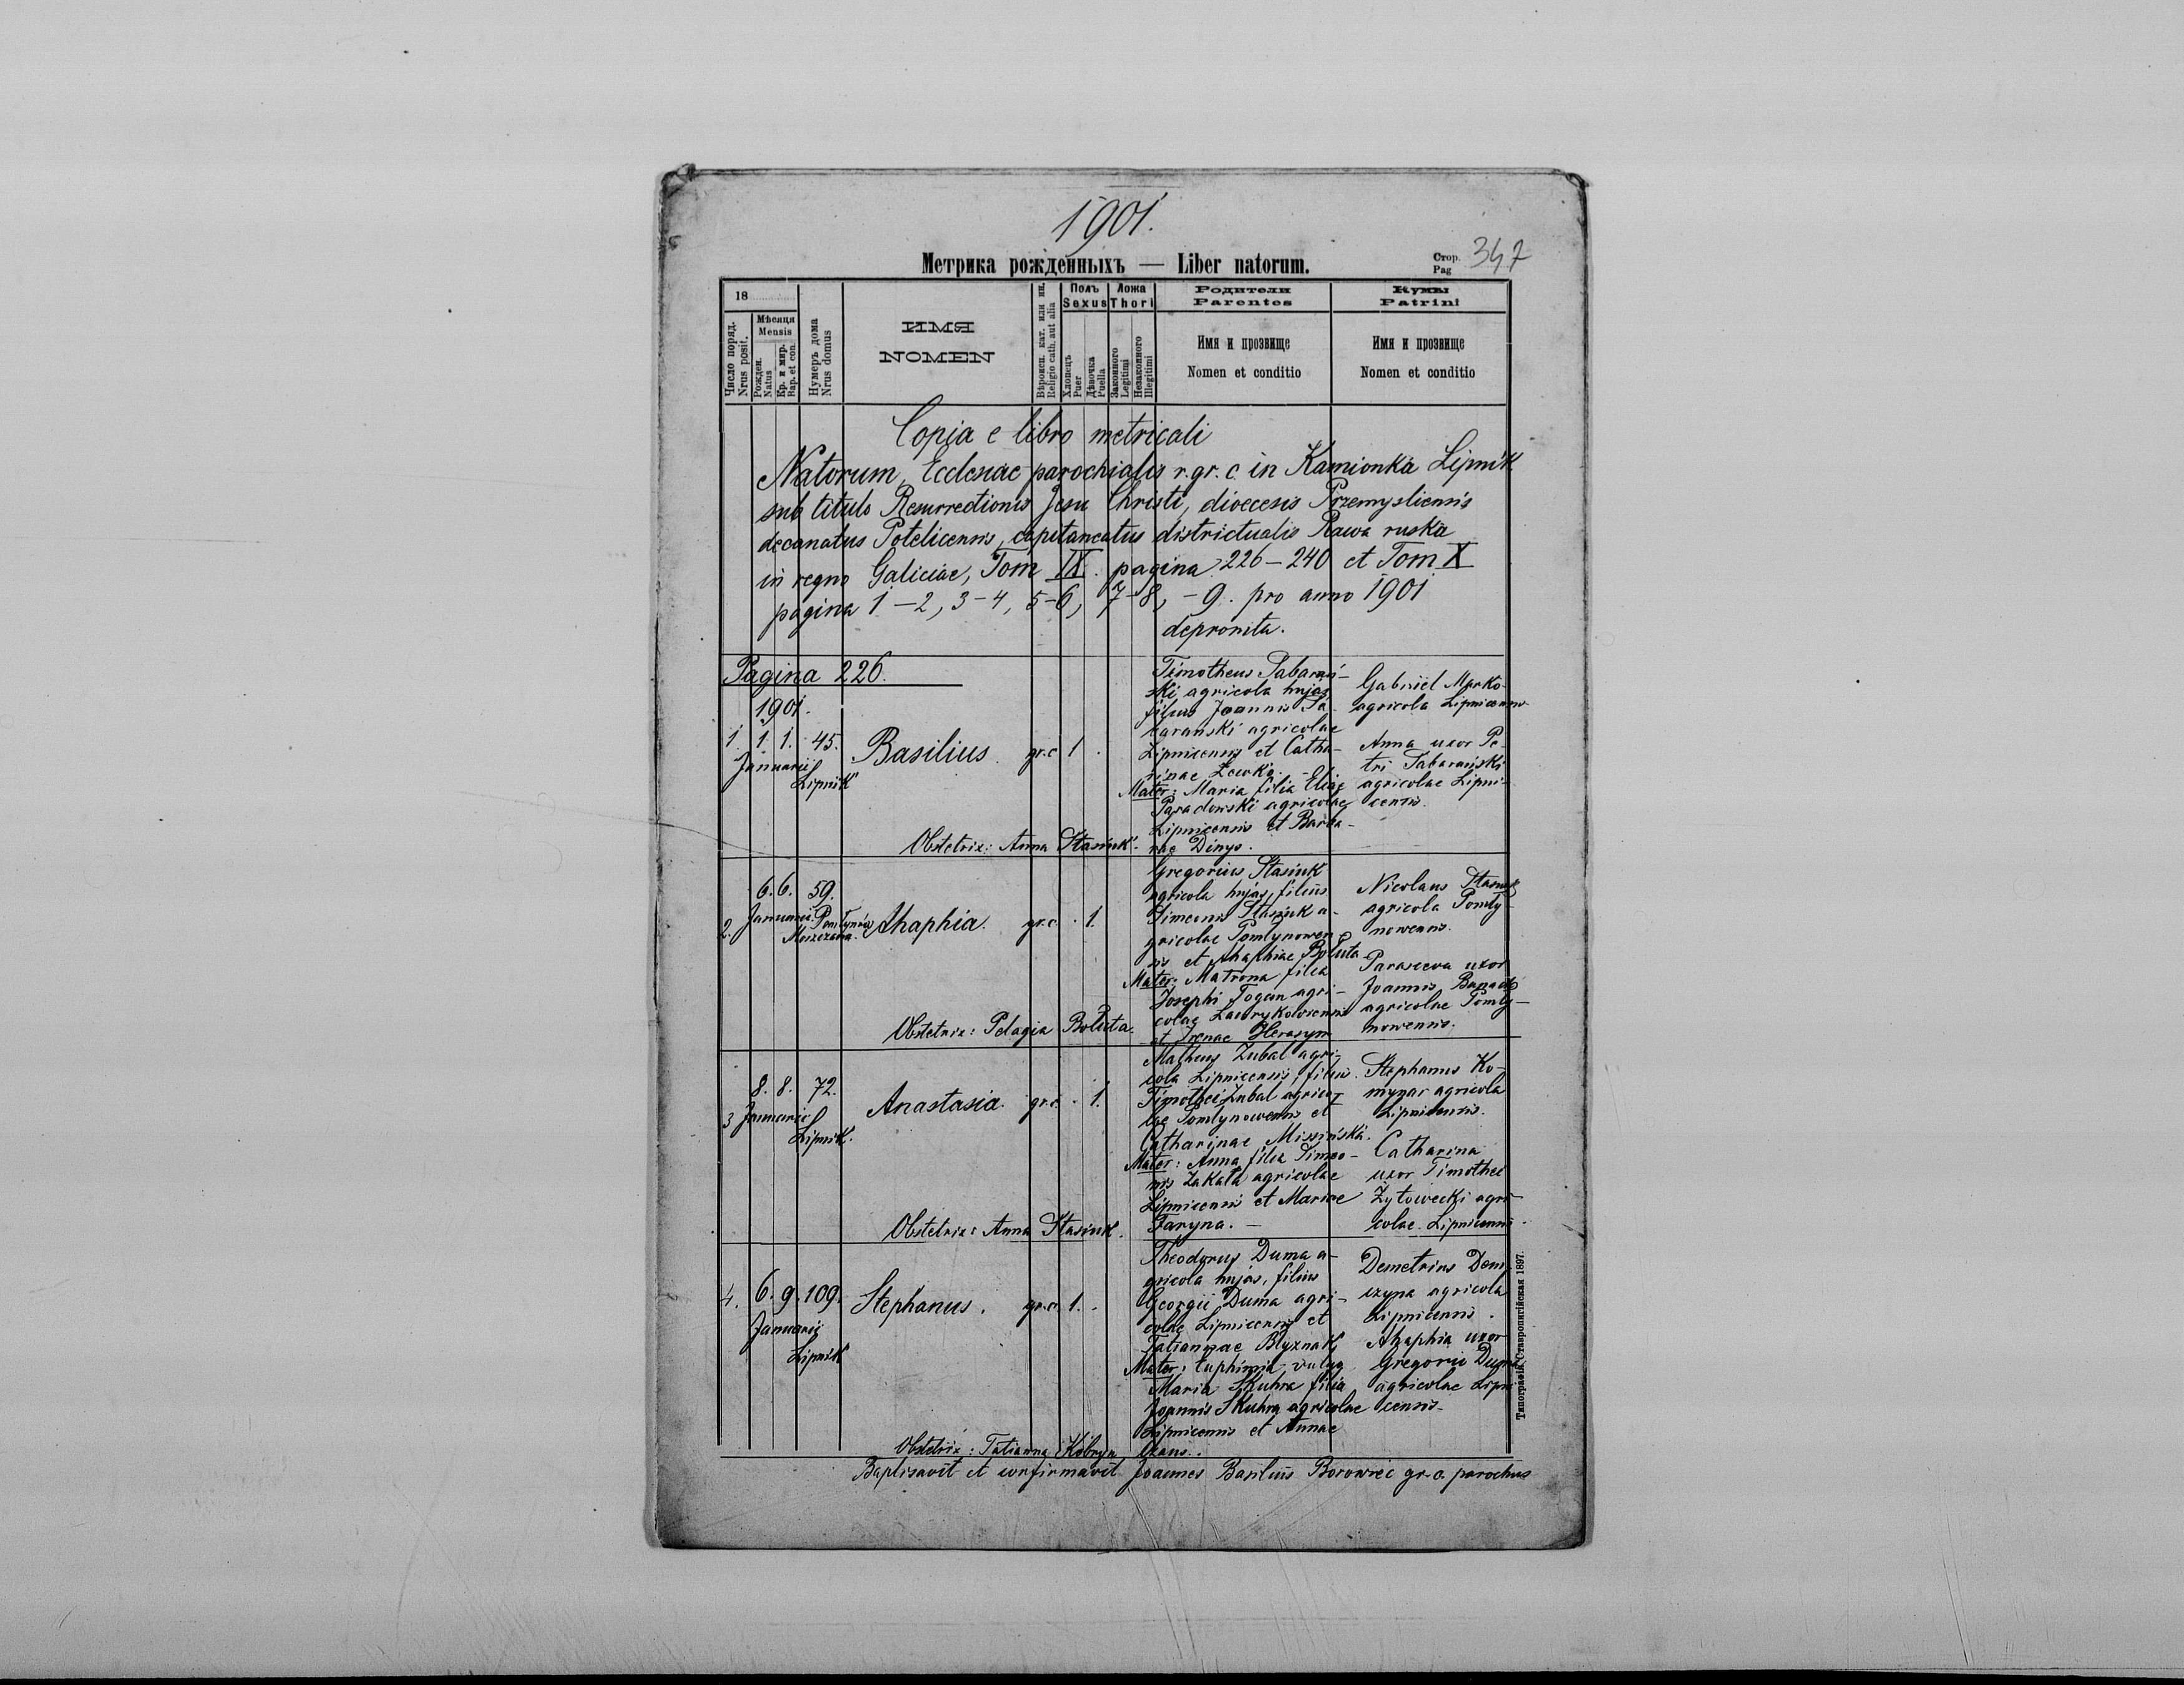 1901.
Метрика рожденныхъ — Liber natorum.
Стор.
Pag 347
18
Число поряд.
Nrus posit.
Мѣсяця
Mensis
Рожден.
Natus
Кр. и мир.
Bap. et con.
Нумеръ дома
Nrus domus
ИМЯ
NOMEN
Вѣроисп. кат. или ин.
Religio cath. aut alia
Полъ
Sexus
Хлопецъ
Puer
Дѣвочка
Puella
Ложа
Thori
Законного
Legitimi
Незаконного
Illegitimi
Родители
Parentes
Имя и прозвище
Nomen et conditio
Кумы
Patrini
Имя и прозвище
Nomen et conditio
Copia e libro metricali
Natorum, Ecclesiae parochialis r. gr. c. in Kamionka Lipnik
sub titulo Resurrectionis Jesu Christi, dioecesis Przemysliensis
decanatus Potelicensis, capitaneatus districtualis Rawa ruska
in regno Galiciae, Tom IX. pagina 226-240 et Tom X
pagina 1-2, 3-4, 5-6, 7-8, -9. pro anno 1901
depromta.
Pagina 226.
1901.
1. 1. 1. 45.
Januarii
Lipnik
Basilius. gr. c. 1 .
Timotheus Tabarań-
ski agricola hujas
filius Joannis Ta-
barański agricolae
Lipnicensis et Catha-
rinae Lewko. -
Mater: Maria filia Eliae
Paradowski agricolae
Lipnicensis et Barba-
rae Dinys.
Gabriel Marko
agricola Lipnicensis
Anna uxor Pe-
tri Tabarański
agricolae Lipni-
censis.
Obstetrix: Anna Stasiuk.
2. 6. 6. 59.
Januarii
Ahaphia. gr. c. . 1.
Gregorius Stasiuk
agricola hujas, filius
Simeonis Stasiuk a-
gricolae Pomlynowen
sis et Ahaphiae Boluta
Mater: Matrona filia
Josephi Togan agri-
colae Lawrykoviensis
et Irenae Herasym
Nicolaus Stasiuk
agricola Pomly-
nowensis.
Parasceva uxor
Joannis
agricolae Pomly-
nowensis.
Obstetrix: Pelagia Boluta.
3 8. 8. 72.
Januarii
Lipnik.
Anastasia. gr. c. . 1.
Matheus Zubal agri-
cola Lipnicensis, filius
Timothei Zubal agrico-
lae Pomlynowensis et
Catharinae Missińska.
Mater: Anna filia Simeo-
nis Zakała agricolae
Lipnicensis et Mariae
Faryna. -
Stephanus Ko-
mynar agricola
Lipnicensis.
Catharina
uxor Timothei
Zytowecki agri-
colae Lipnicensis.
Obstetrix: Anna Stasiuk.
4. 6. 9. 109.
Januarii
Lipnik
Stephanus. gr. c. 1. .
Theodorus Duma a-
gricola hujas, filius
Georgii Duma agri-
colae Lipnicensis et
Tatiannae Blyznak
Mater: Euphimia vulgo
Maria Skuhra filia
Joannis Skuhra agricolae
Lipnicensis et Annae
Demetrius Dem-
czyna agricola
Lipnicensis.
Ahaphia uxor
Gregorii Duma
agricolae Lipni
censis-
Obstetrix: Tatianna Kobryn
Baptisavit et confirmavit Joannes Basilius Borowiec gr. c. parochus
Типографія Ставропигійская 1897.